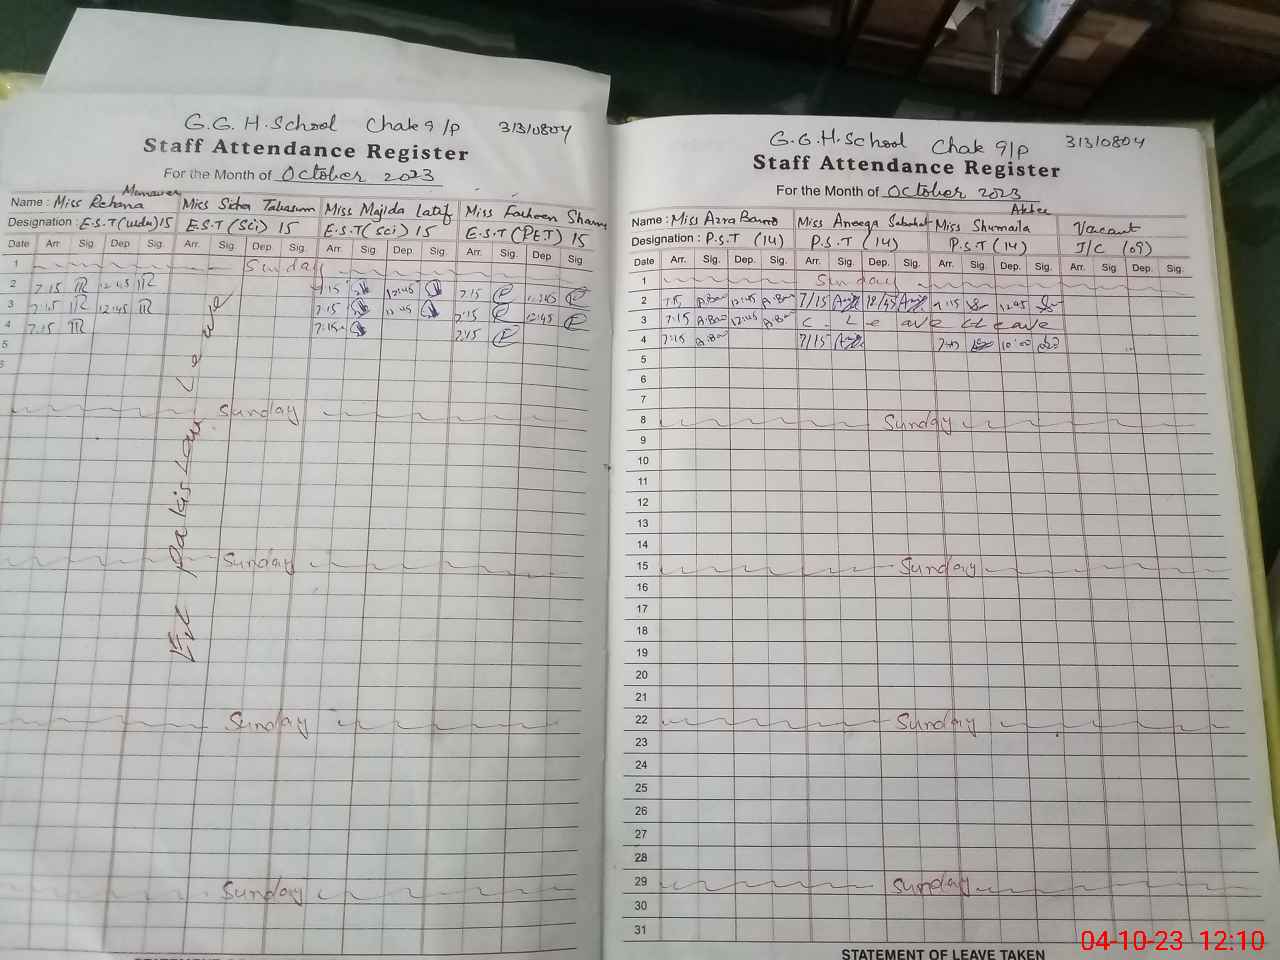 G.G.H.School Chak 9/P 31310804
Staff Attendance Register
For the Month of October 2023
Name : Miss Rehana Munawer Miss Sidra Tabasum Miss Majida Latif Miss Farheen Shams
Designation : E.S.T (urdu) 15 E.S.T (Sci) 15 E.S.T (Sci) 15 E.S.T (PET) 15
Date Arr. Sig. Dep Sig. Arr. Sig. Dep Sig. Arr. Sig Dep. Sig. Arr. Sig. Dep Sig.
1 Sunday
2 7:15 R 12:45 R 7:15 12:45 7:15 12:45
3 7:15 R 12:45 R 7:15 12:45 7:15 12:45
4 7:15 R 7:15 7:15
5
6
Sunday
Sunday
Sunday
Sunday
Ex Pakistan Leave
G.G.H.School Chak 9/P 31310804
Staff Attendance Register
For the Month of October 2023
Name : Miss Azra Bano Miss Aneeqa Sabahat Miss Shumaila Akhter Vacant
Designation : P.S.T (14) P.S.T (14) P.S.T (14) I/C (09)
Date Arr. Sig. Dep. Sig. Arr Sig. Dep. Sig. Arr. Sig. Dep. Sig. Arr. Sig. Dep. Sig.
1 Sunday
2 7:15 A.Bano 12:45 A.Bano 7/15 12/45 7:15 12:45
3 7:15 A.Bano 12:45 A.Bano C. Leave C Leave
4 7:15 A.Bano 7/15 10:00
5
6
7
8 Sunday
9
10
11
12
13
14
15 Sunday
16
17
18
19
20
21
22 Sunday
23
24
25
26
27
28
29 Sunday
30
31
STATEMENT OF LEAVE TAKEN
04-10-23 12:10